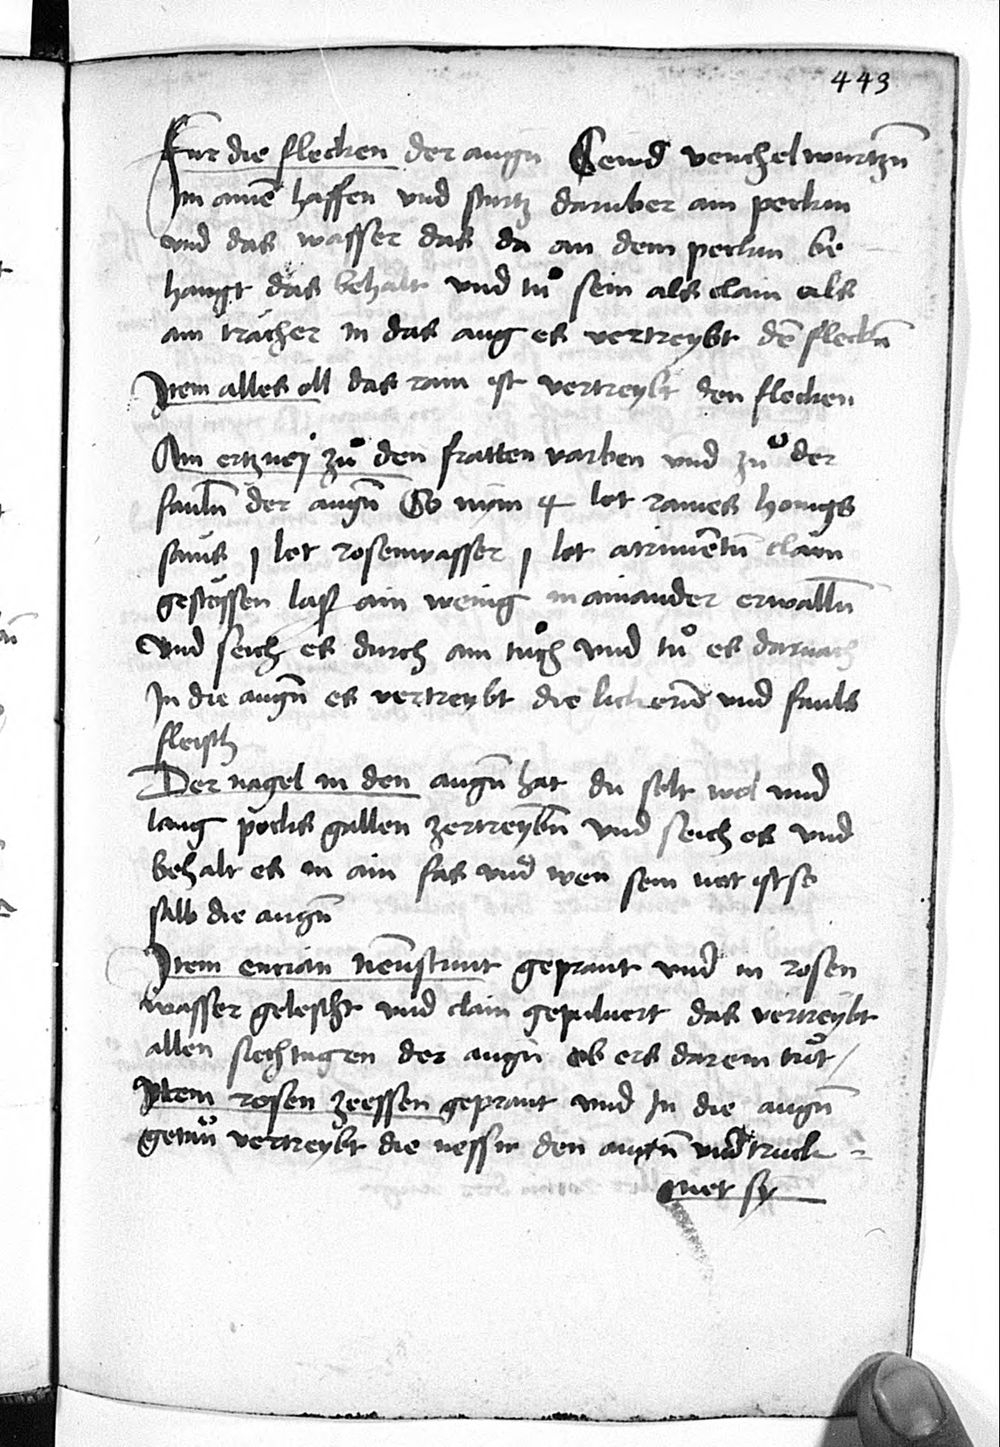 443
Fur die flecken der augn Sewd venchelwurtzn̄
Im ainē haffen vnd sturtz daruber ain peckin
vnd das wasser das da an dem peckin be
hangt das behalt vnd tuͦ sein als clain als
ain trácher in das aug es vertreybt dē fleckn̄
Item alles oll das rain ist vertreybt den flecken
Ain ertznej zuͦ den fratten varben vnd zuͦ der
fauln̄ der augn̄ So nym 4 lot raines honigs
sauͤs j lot rosenwasser j lot atrimētū clain
gestossen lasß ain wenig in ainander erwalln̄
vnd seich es durch ain tuͦch vnd tuͦ es darnach
In die augn̄ es vertreybt die und fauls
fleisch
Der nagel in den augn̄ hat du solt wol vnd
lang pocks gallen zertreybn̄ vnd seich es vnd
behalt es in ain fas vnd wen sein not ist so
salb die augn̄
Item encian geprant vnd in rosen
wasser gelescht vnd clain gepulvert das vertreybt
allen siechtagen der augn ob ers darein tuͦt /
Item rosen zeessen geprant vnd In die augn̄
getaͦn vertreybt die nessin den augn̄ vnd truck =
net sy